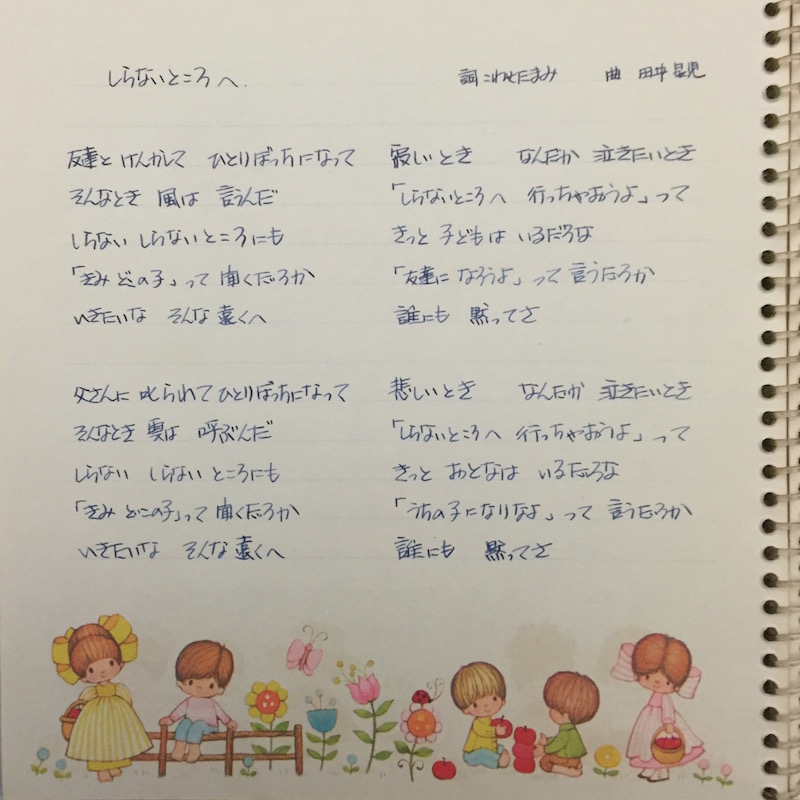 しらないところへ 詞 こわせたまみ 曲 田中星児
友達と けんかして ひとりぼっちになって 寂しいとき なんだか 泣きたいとき
そんなとき 風は 言うんだ 「しらないところへ 行っちゃおうよ」って
しらない しらないところにも きっと 子どもは いるだろな
「きみ どこの子」って 聞くだろか 「友達に なろうよ」って 言うだろか
いきたいな そんな 遠くへ 誰にも 黙ってさ
父さんに 叱られて ひとりぼっちになって 悲しいとき なんだか 泣きたいとき
そんなとき 雲は 呼ぶんだ 「しらないところへ 行っちゃおうよ」って
しらない しらない ところにも きっと おとなは いるだろな
「きみ どこの子」って 聞くだろか 「うちの子になりなよ」って 言うだろか
いきたいな そんな 遠くへ 誰にも 黙ってさ